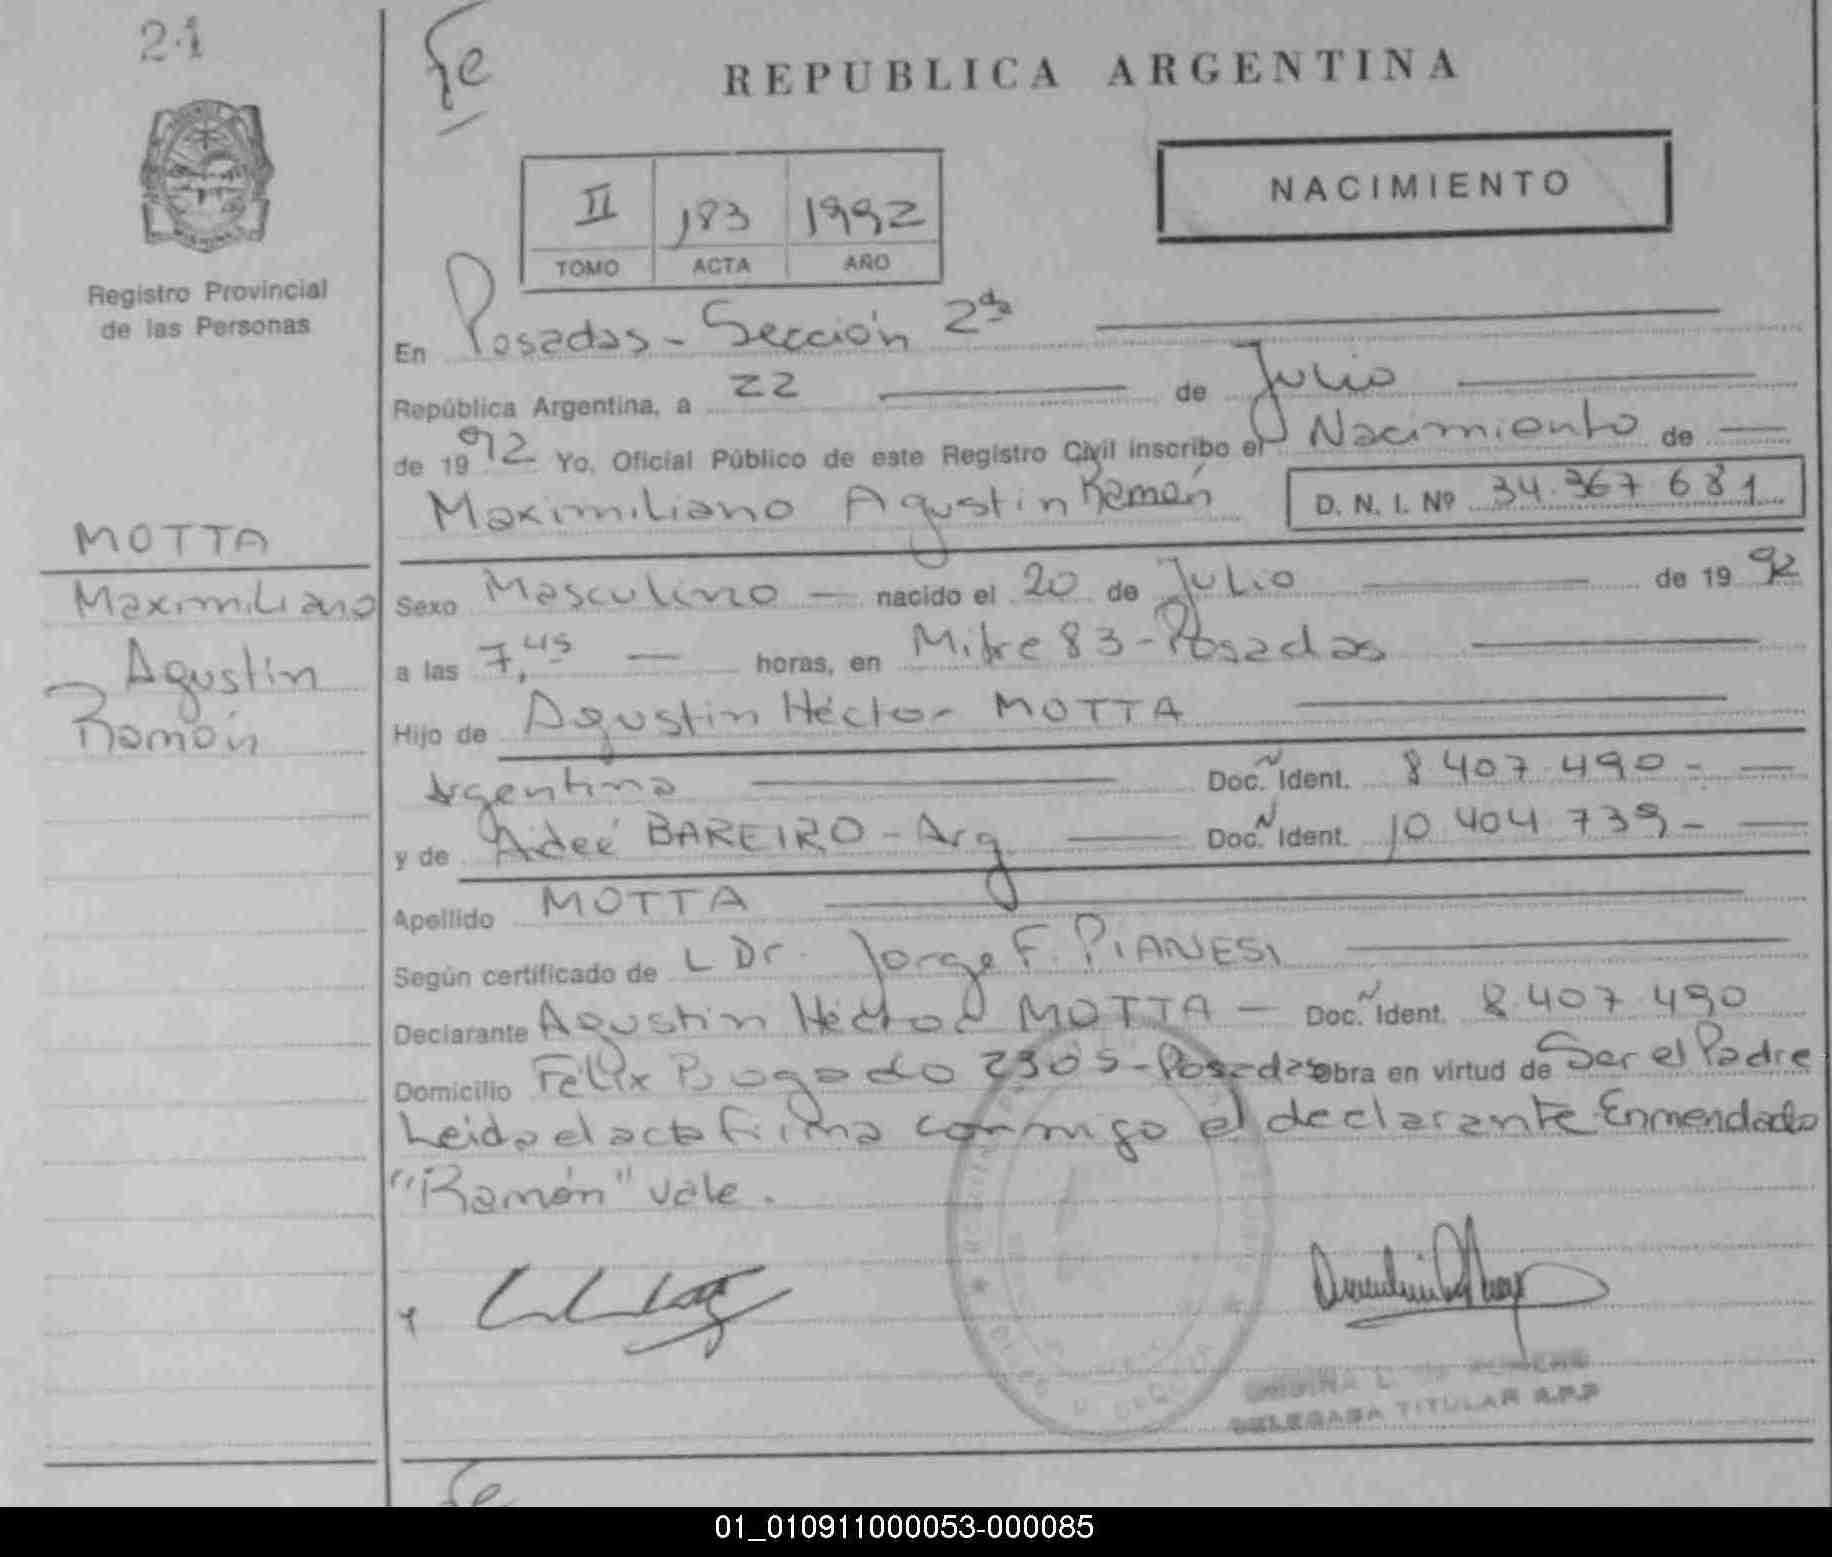 21
Fe
REPUBLICA ARGENTINA
NACIMIENTO
II 183 1992
TOMO ACTA AÑO
Registro Provincial
de las Personas
En Posadas - Sección 2da
República Argentina, a 22 de Julio
de 1992 Yo, Oficial Público de este Registro Civil inscribo el Nacimiento de
Maximiliano Agustin Ramón D. N. I. Nº 34.367 681
MOTTA
Maximiliano
Agustin
Ramón
Sexo Masculino - nacido el 20 de Julio de 1992
a las 7,45 horas, en Mitre 83 - Posadas
Hijo de Agustin Héctor MOTTA
Argentina Doc. Ident. 8 407 490 -
y de Aideé BAREIRO - Arg Doc. Ident. 10 404 739 -
Apellido MOTTA
Según certificado de L Dr. Jorge F. PIANESI
Declarante Agustin Héctor MOTTA - Doc. Ident. 8 407 490
Domicilio Félix Bogado 2305 - Posadas obra en virtud de Ser el Padre
Leida el acta firma conmigo el declarante Enmendado
"Ramón" vale.
DELEGADA TITULAR R.P.P
Fe
01_010911000053-000085